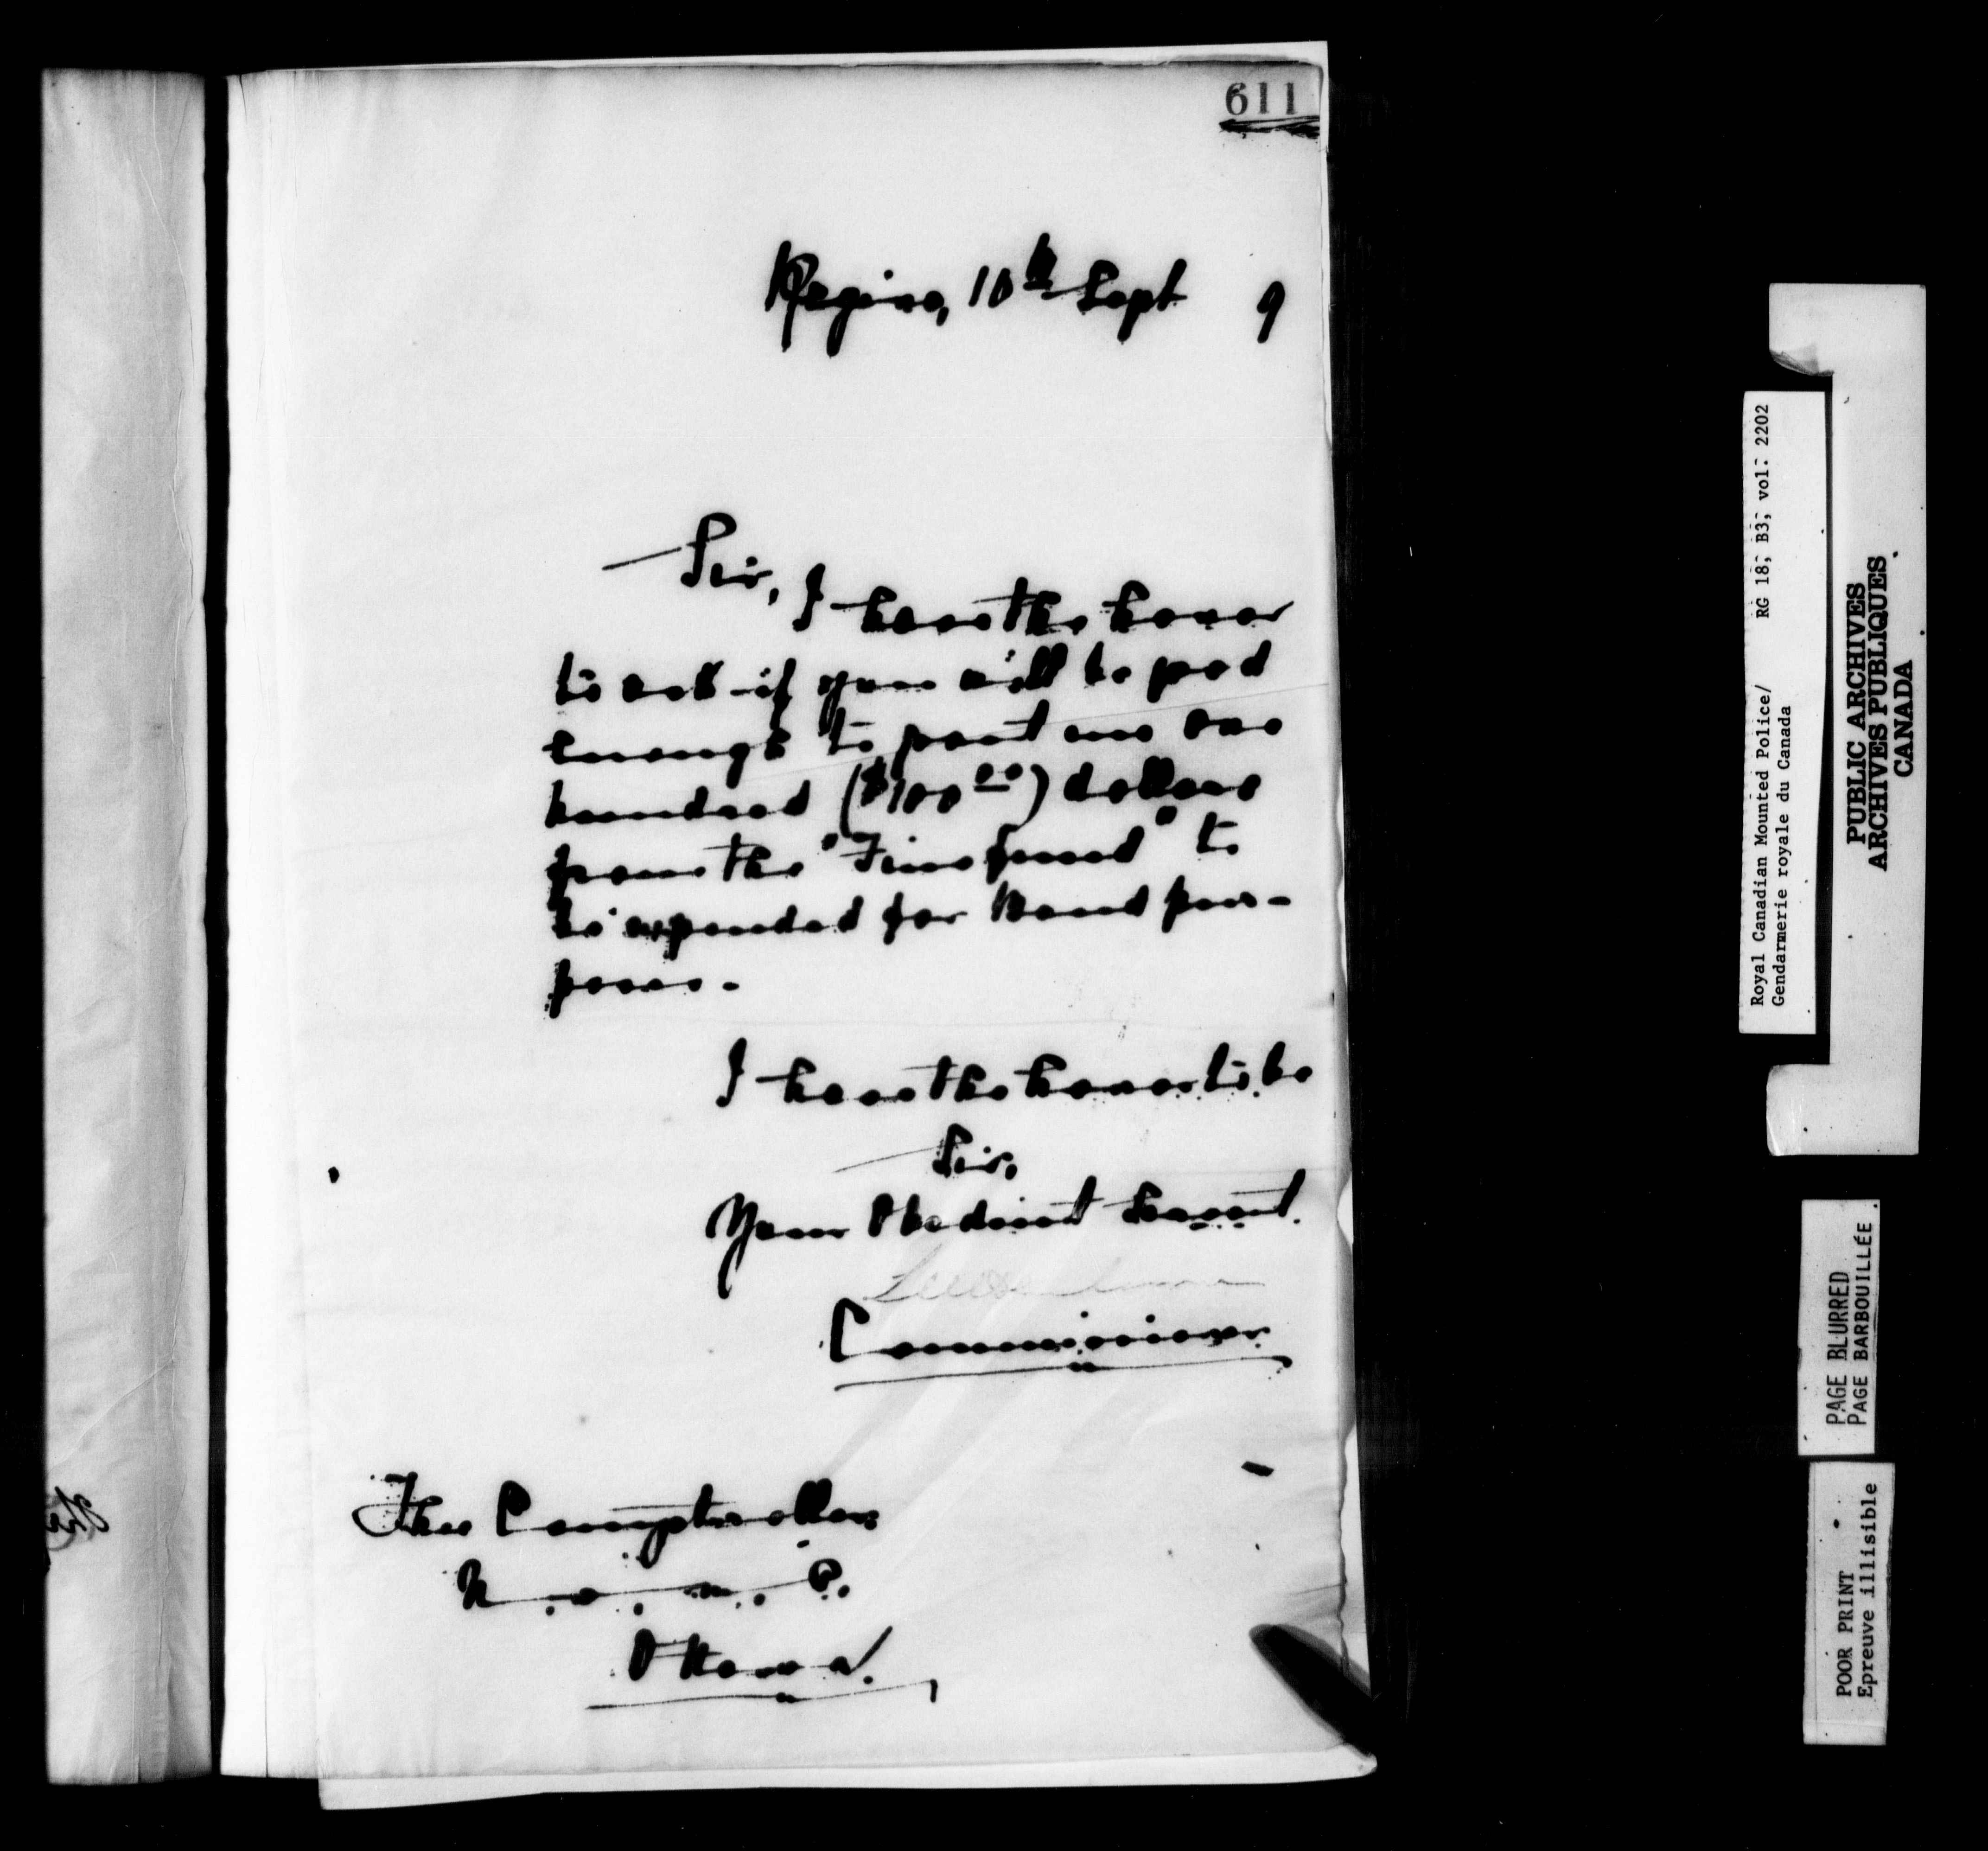 611
Regina, 10th Sept 9
Sir,
I have the honor
to ask if you will be good
enough to grant me one
hundred ($100.00) dollars
from the "Fine fund" to
be expended for Band pur-
poses.
I have the honor to be
Sir,
Your Obedient Servant.
Commissioner.
The Comptroller
N.W.M.P.
Ottawa.
Royal Canadian Mounted Police/ RG 18, B3, vol. 2202
Gendarmerie royale du Canada
PUBLIC ARCHIVES
ARCHIVES PUBLIQUES
CANADA
PAGE BLURRED
PAGE BARBOUILLÉE
POOR PRINT
Epreuve illisible